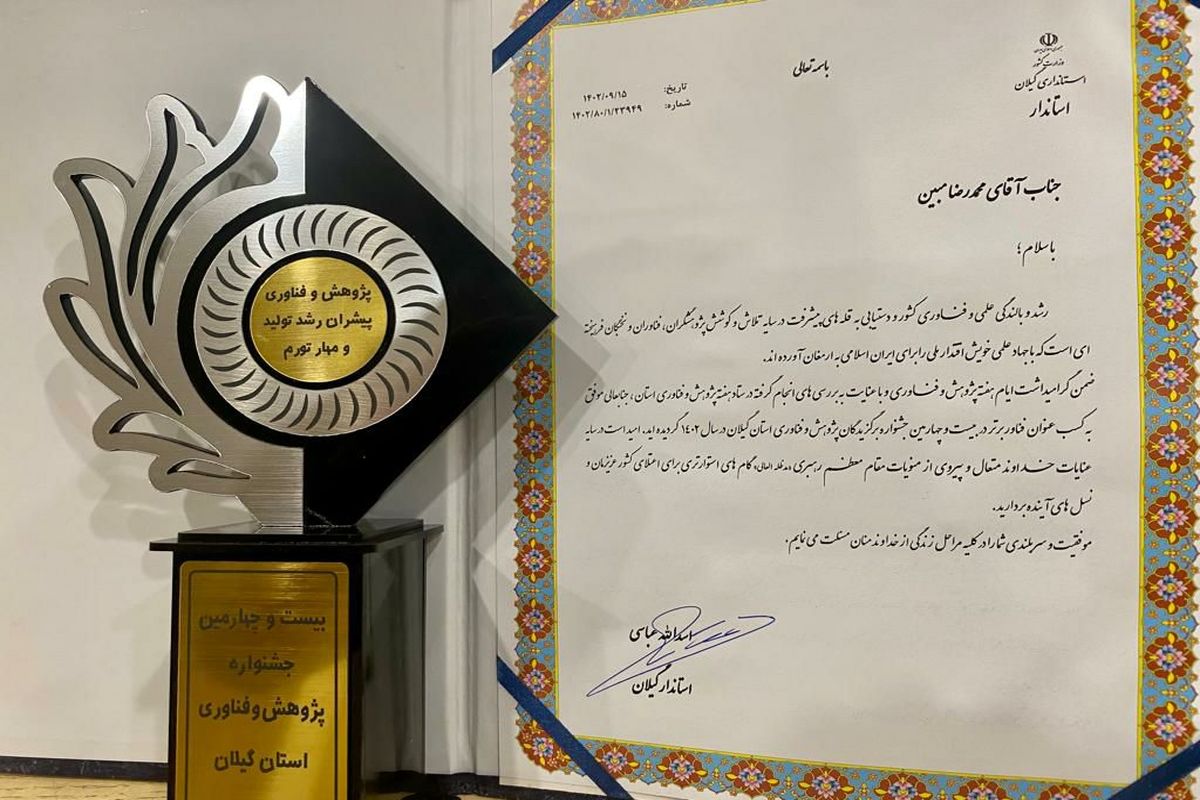 پژوهش و فناوری
پیشران رشد تولید
و مهار تورم
بیست و چهارمین
جشنواره
پژوهش و فناوری
استان گیلان
باسمه تعالی
وزارت کشور
استانداری گیلان
استاندار
تاریخ: ۱۴۰۲/۰۹/۱۵
شماره: ۱۴۰۲/۸۰/۱/۲۳۹۴۹
جناب آقای محمدرضا مبین
با سلام ؛
رشد و بالندگی علمی و فناوری کشور و دستیابی به قله های پیشرفت در سایه تلاش و کوشش پژوهشگران، فناوران و نخبگان فرهیخته
ای است که با جهاد علمی خویش اقتدار ملی را برای ایران اسلامی به ارمغان آورده اند.
ضمن گرامیداشت ایام هفته پژوهش و فناوری و با عنایت به بررسی های انجام گرفته در ستاد هفته پژوهش و فناوری استان ، جنابعالی موفق
به کسب عنوان فناور برتر در بیست و چهارمین جشنواره برگزیدگان پژوهش و فناوری استان گیلان در سال ۱۴۰۲ گردیده اید. امید است در سایه
عنایات خداوند متعال و پیروی از منویات مقام معظم رهبری (مدظله العالی) گام های استوارتری برای اعتلای کشور عزیزمان و
نسل های آینده بردارید.
موفقیت و سربلندی شما را در کلیه مراحل زندگی از خداوند منان مسئلت می نمایم.
اسدالله عباسی
استاندار گیلان